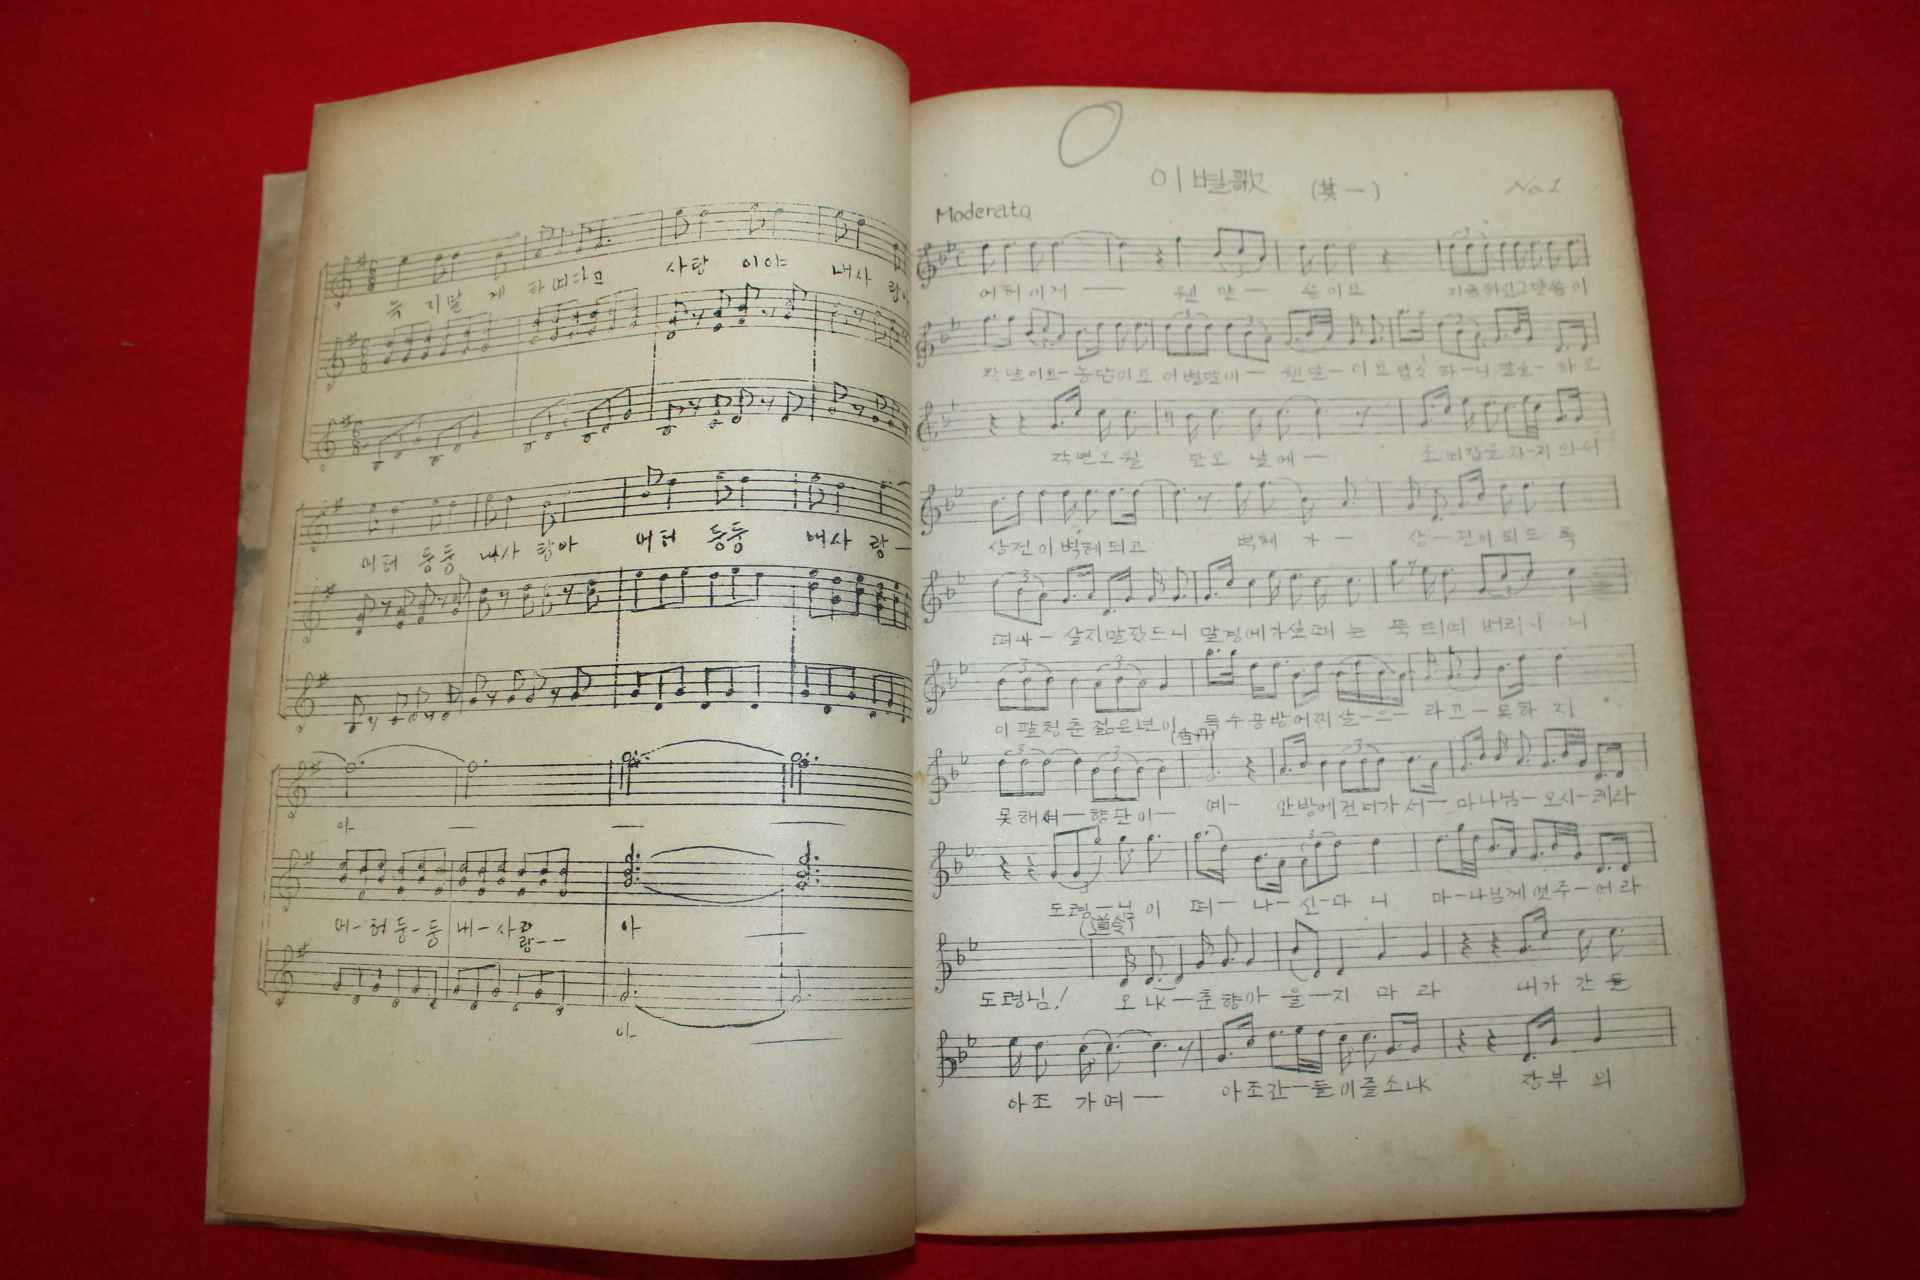 늑 지말 게 하며다고 사랑 이야 내사 랑아
어허 둥둥 내사 랑아 어허 둥둥 내사 랑—
아 — — —
어-허둥-둥 내-사랑-- 아 —
아 —
이별歌 (其一) No.1
Moderato
어허이게 — 웬 말— 씀이요 지금하신그말씀이
참말이요-농담이요 이별말이— 웬말-이요 답답 하-니 말을- 하오
작년오월 단오 날에— 소녀집을차-저와서
상전이벽해되고 벽해 가— 상-전이되도 록
떠나- 살지말잤드니 말경에가선때 는 뚝 띄여 버리시 니
이팔청춘젊은년이 독수공방어찌살-으- 라고-못하 지
(香丹)
못해여-향단이— 예- 안방에건너가서- 마나님- 오시-레라
도령-님이 떠- 나-신-다 니 마-나님께엿주-어라
(道令)
도령님! 오냐-춘향아 울-지 마 라 내가 간 들
아조 가며— 아조간-들이즐소냐 장부 의